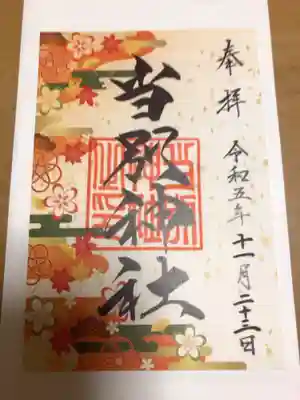 奉拝
令和五年十一月二十三日
当別神社